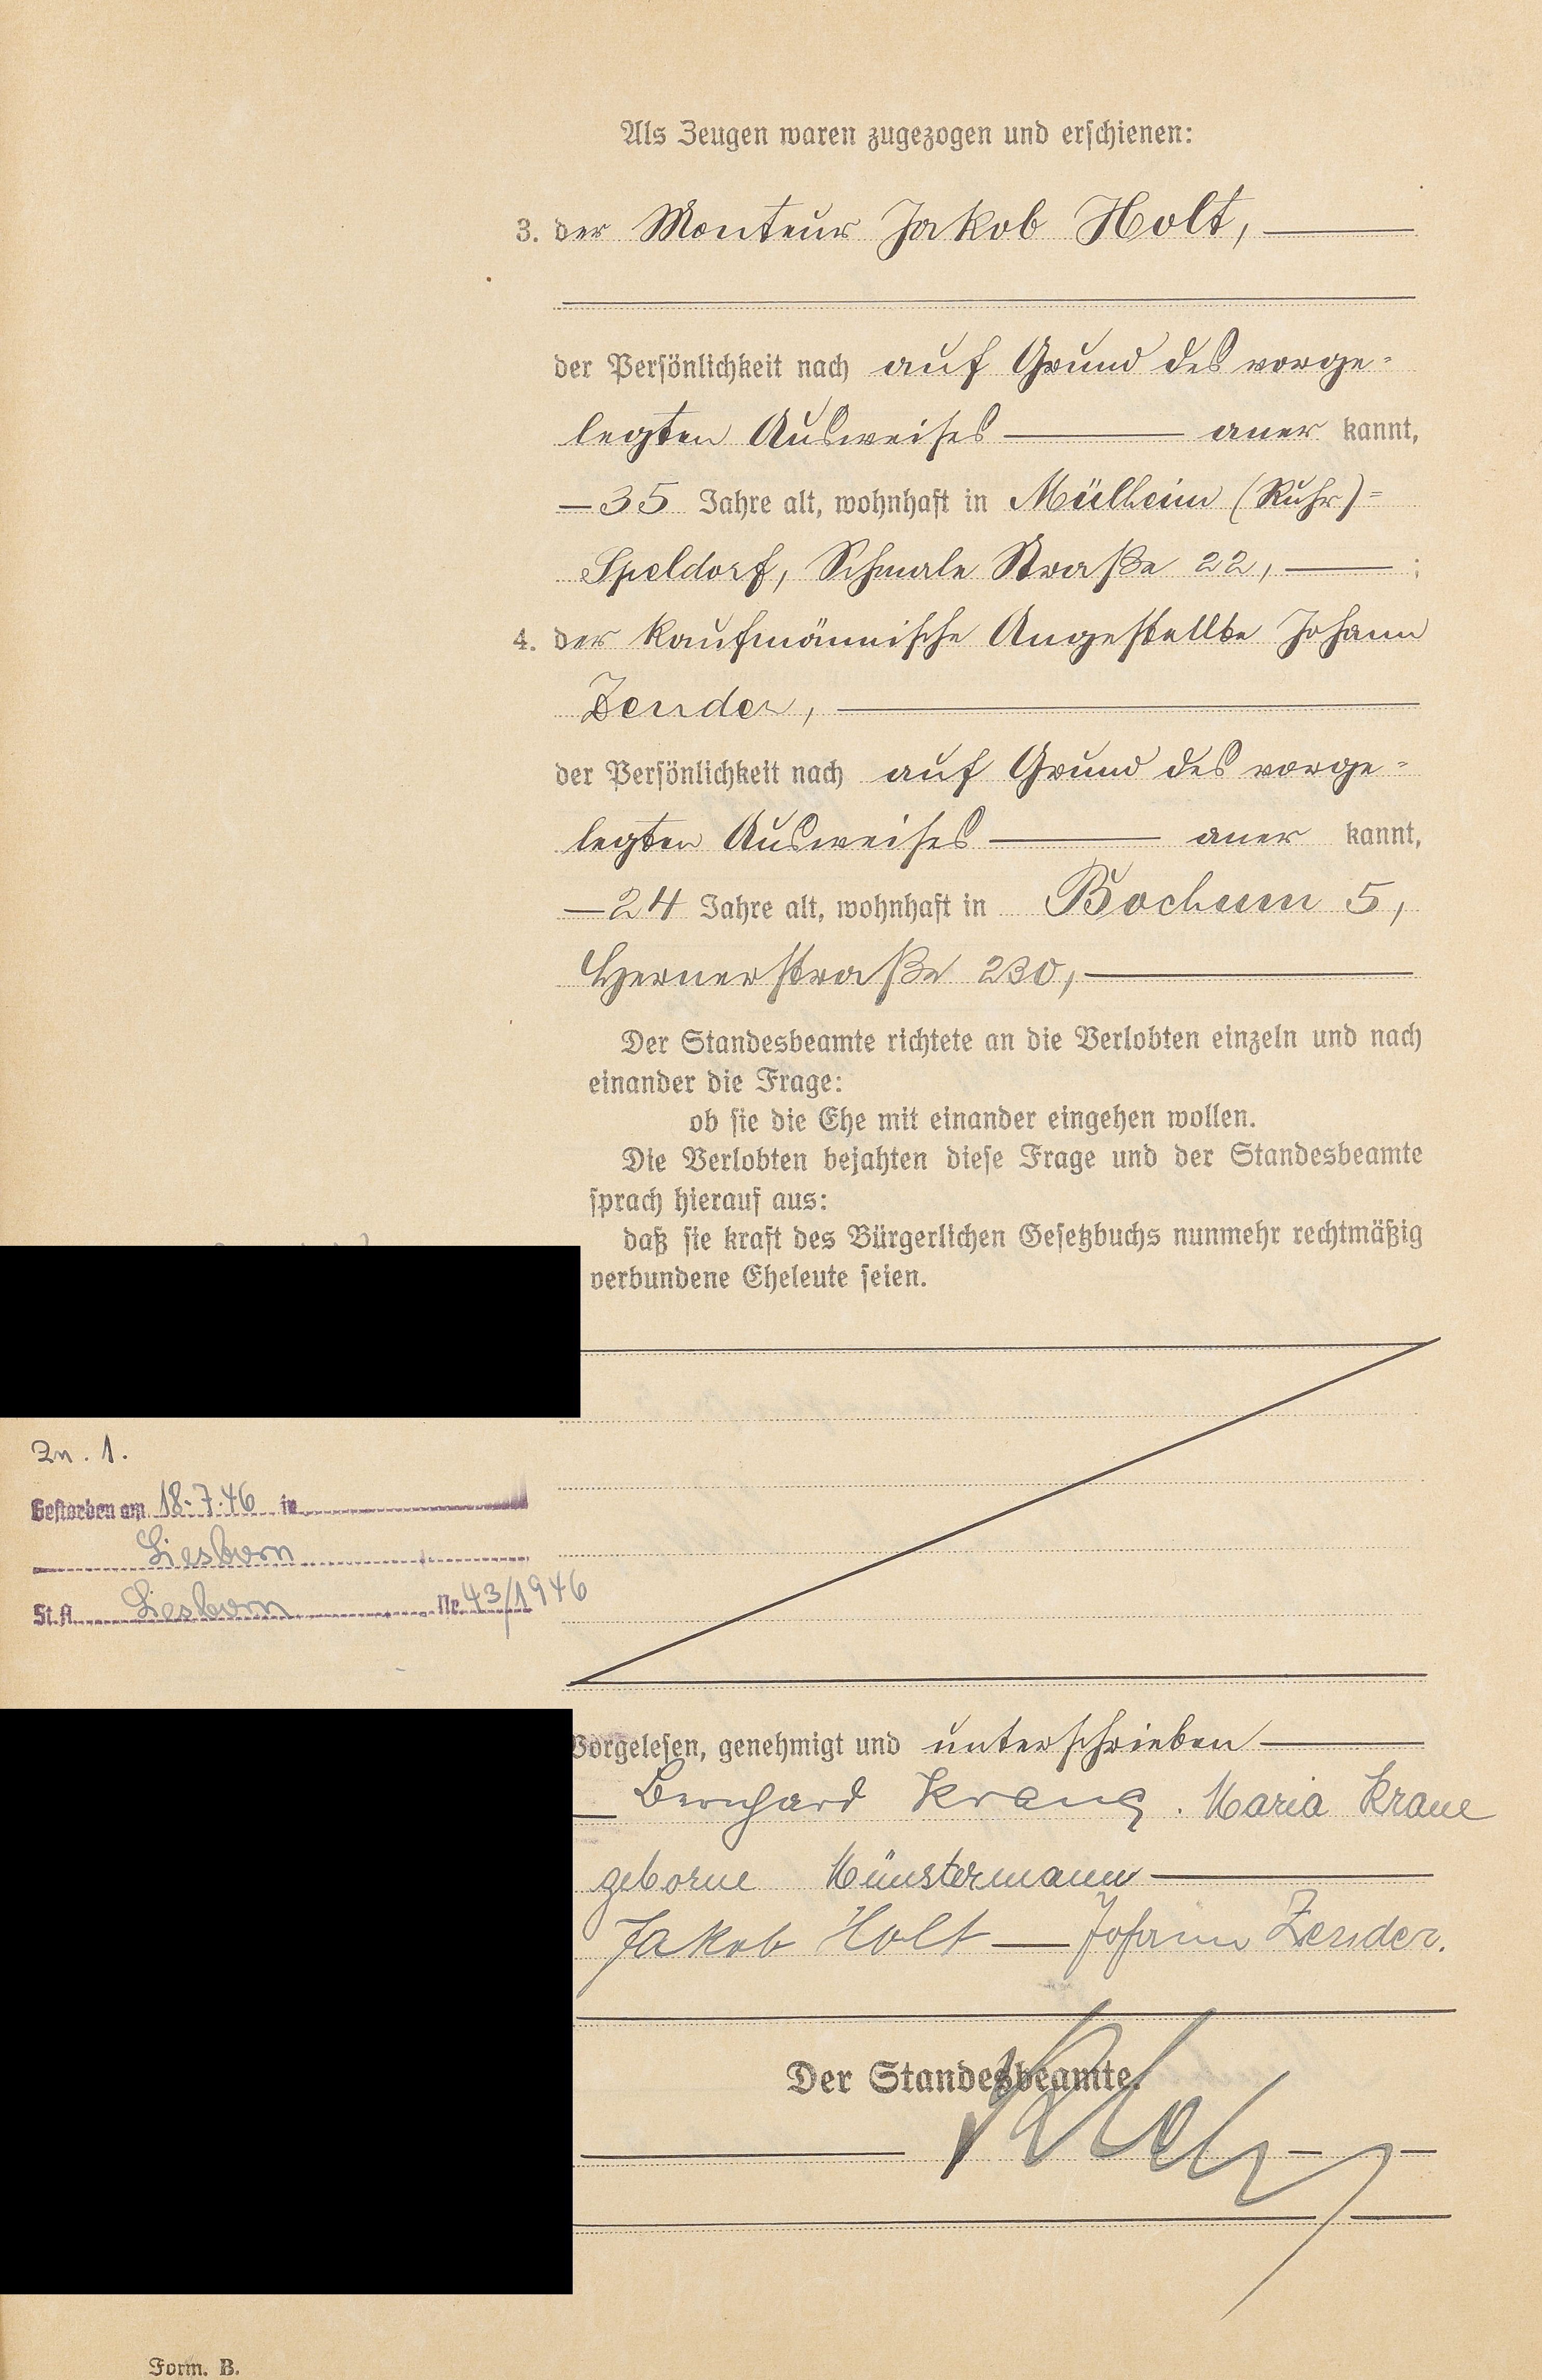 Als Zeugen waren zugezogen und erschienen:
3. der Monteur Jakob Holt,
der Persönlichkeit nach auf Grund des vorge-
legten Ausweises aner kannt,
35 Jahre alt, wohnhaft in Mülheim (Ruhr)=
Speldorf, Schmale Straße 22, ;
4. der kaufmännische Angestellte Johann
Zender,
der Persönlichkeit nach auf Grund des vorge-
legten Ausweises aner kannt,
24 Jahre alt, wohnhaft in Bochum 5,
Hernerstraße 230,
Der Standesbeamte richtete an die Verlobten einzeln und nach
einander die Frage:
ob sie die Ehe mit einander eingehen wollen.
Die Verlobten bejahten diese Frage und der Standesbeamte
sprach hierauf aus:
daß sie kraft des Bürgerlichen Gesetzbuchs nunmehr rechtmäßig
verbundene Eheleute seien.
Zu. 1.
Gestorben am 18.7.46 in
Liesborn
St.A. Liesborn Nr. 43/1946
Vorgelesen, genehmigt und unterschrieben
Bernhard Krane. Maria Krane
geborne Münstermann
Jakob Holt — Johann Zender.
Der Standesbeamte.
Form. B.